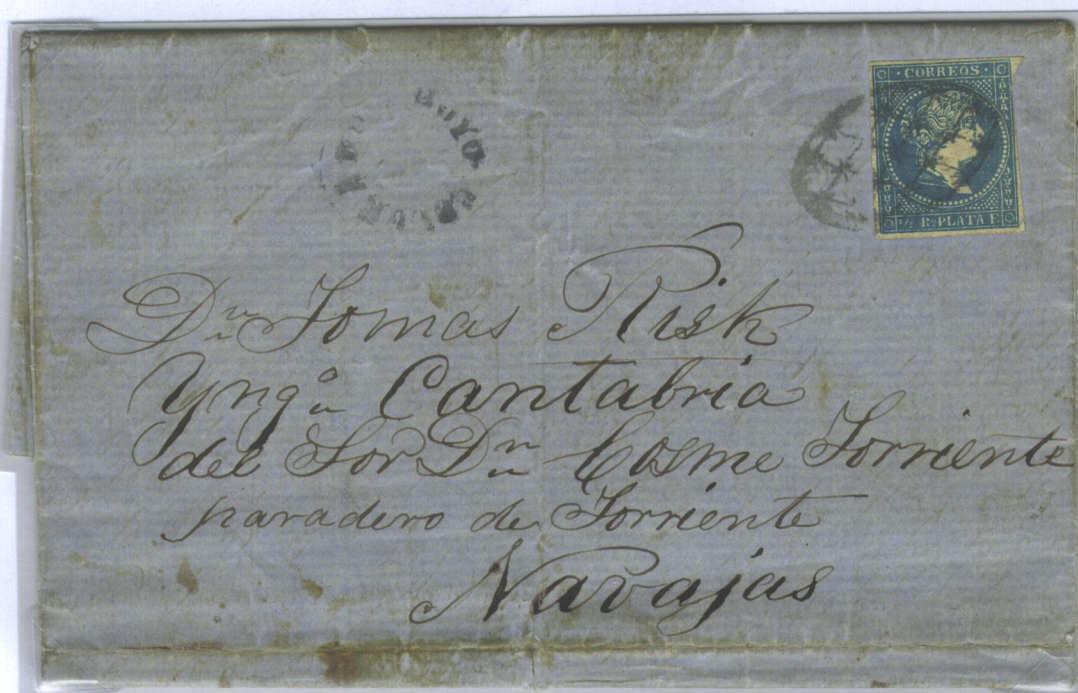 CORREOS
½ Rl PLATA F.
Dn Tomas Risk
Yngo Cantabria
del Sor Dn Cosme Torriente
paradero de Torriente
Navajas